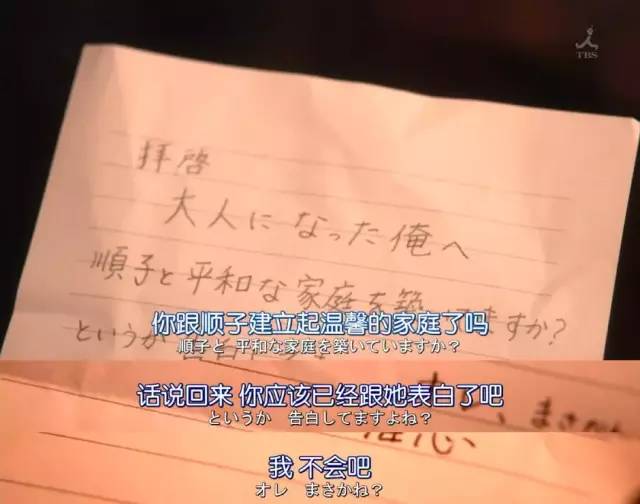 TBS
拝啓
大人になった俺へ
順子と平和な家庭を築 ますか?
你跟顺子建立起温馨的家庭了吗
というか
順子と 平和な家庭を築いていますか?
话说回来 你应该已经跟她表白了吧
というか 告白してますよね?
まさか
我 不会吧
オレ まさかね?